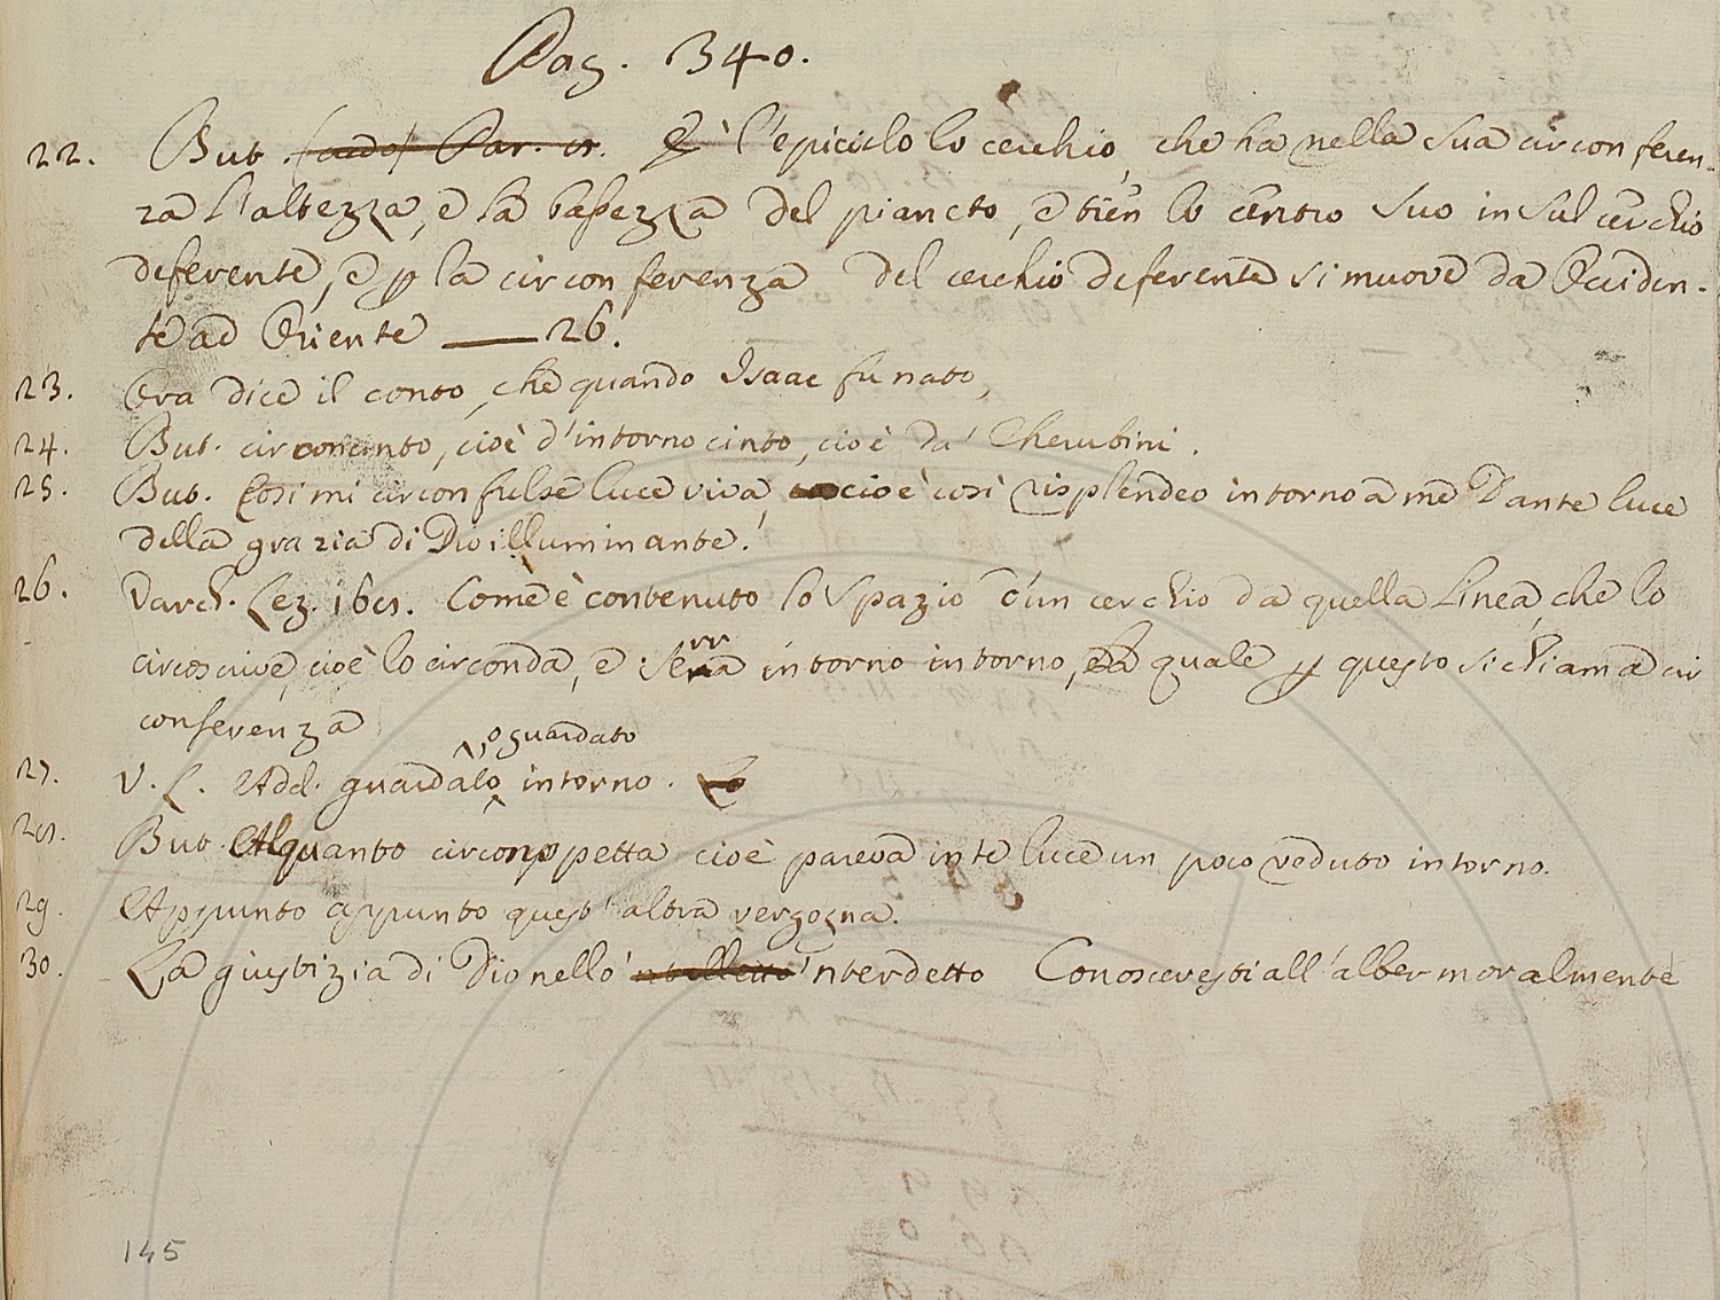 Pag. 340.
22. But. (cado) Par. cr. È l'epiciclo lo cerchio, che ha nella sua circonferen-
za l'altezza, e la bassezza del piancto, e tien lo centro suo in sul cerchio
deferente, e p la circonferenza del cerchio deferente si muove da Occiden-
te ad Oriente —— 26.
23. Ora dice il conto, che quando Isaac fu nato,
24. But. circoncinto, cioè d'intorno cinto, cioè da' Cherubini.
25. But. Così mi circonfulse luce viva, cioè così risplendeo intorno a me Dante luce
della grazia di Dio illuminante.
26. Varch. Lez. 168. Come è contenuto lo spazio d'un cerchio da quella linea, che lo
circoscrive, cioè lo circonda, e serra intorno intorno, la quale p questo si chiama cir
conferenza
27. V. L. Add. guardato, o guardato intorno.
28. But. Alquanto circonspetta cioè pareva in te luce un poco veduto intorno.
29. Appunto appunto quest'altra vergogna.
30. La giustizia di Dio nello 'ntelletto 'nterdetto Conosceresti all'alber moralmente
145